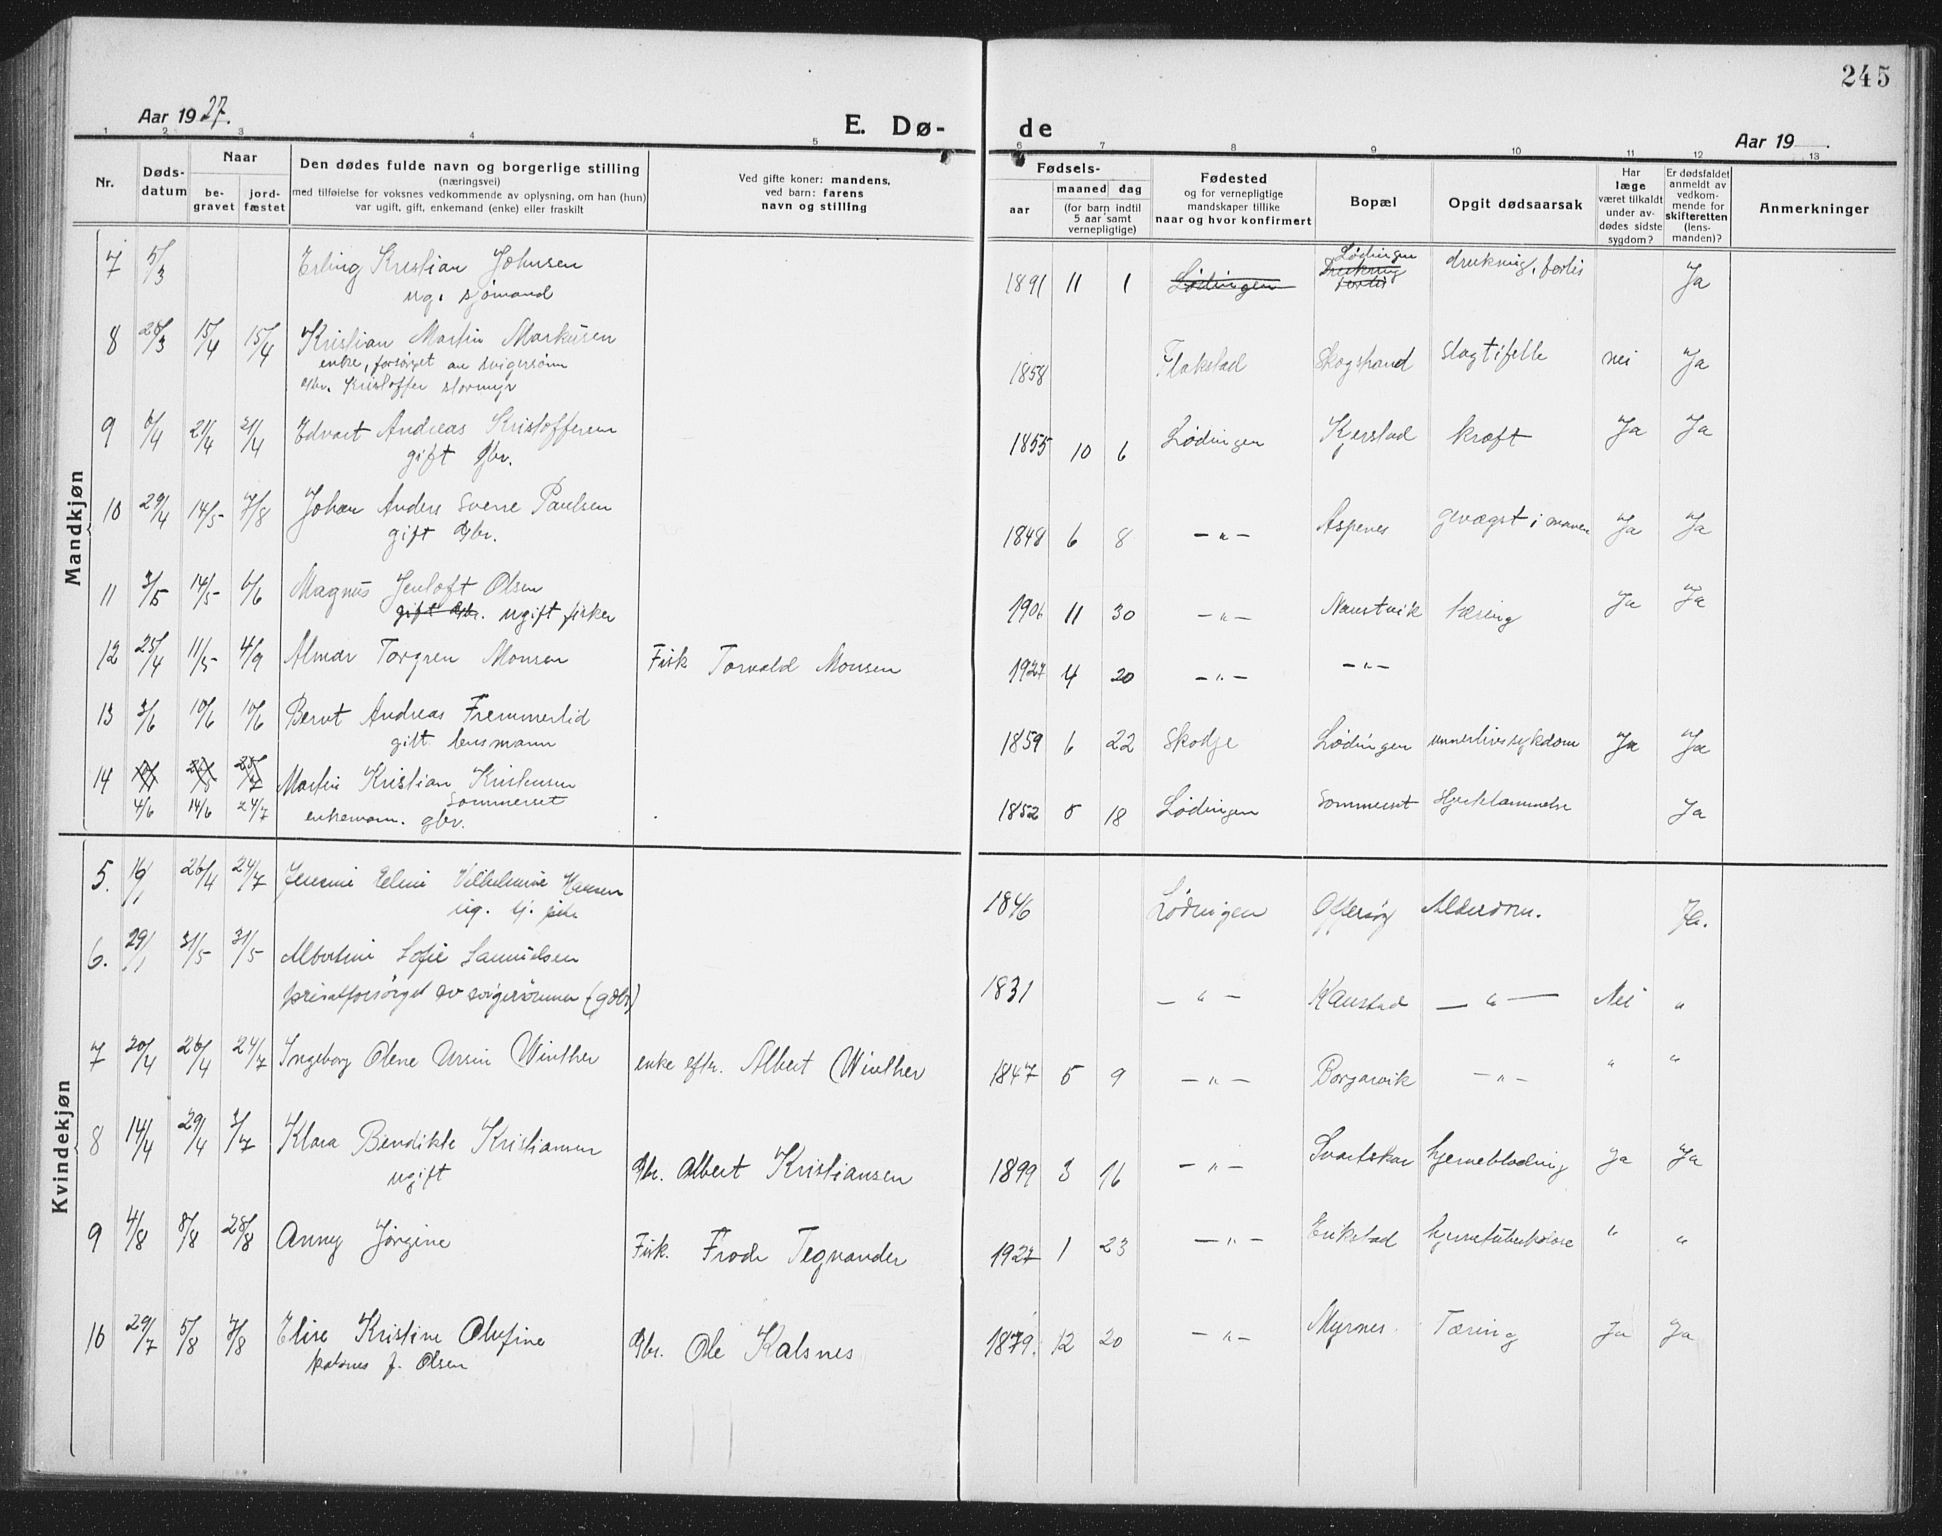 245
Aar 1927.
E. Dø-
de
Aar 19
1 2 3 4 5 6 7 8 9 10 11 12 13
Nr.
Døds-
datum
Naar
be-
gravet
jord-
fæstet
Den dødes fulde navn og borgerlige stilling
(næringsvei)
med tilføielse for voksnes vedkommende av oplysning, om han (hun)
var ugift, gift, enkemand (enke) eller fraskilt
Ved gifte koner: mandens,
ved barn: farens
navn og stilling
Fødsels-
aar
maaned dag
(for barn indtil
5 aar samt
vernepligtige)
Fødested
og for vernepligtige
mandskaper tillike
naar og hvor konfirmert
Bopæl
Opgit dødsaarsak
Har
læge
været tilkaldt
under av-
dødes sidste
sygdom?
Er dødsfaldet
anmeldt av
vedkom-
mende for
skifteretten
(lens-
manden)?
Anmerkninger
Mandkjøn
7 5/3 Erling Kristian Johnsen 1891 11 1 Lødingen Lødingen drukning, forlis Ja
ug. sjømand
8 28/3 15/4 15/4 Kristian Martin Markusen 1858 Flakstad Skogstrand slagtifelle nei Ja
enke, forsørget av svigersønn
gbr. Kristoffer Stormyr
9 6/4 21/4 21/4 Edvart Andreas Kristoffersen 1855 10 6 Lødingen Kjerstad kræft Ja Ja
gift gbr.
10 29/4 14/5 7/8 Johan Anders Sverre Paulsen 1848 6 8 -"- Aspenes gevægst i maven Ja Ja
gift gbr.
11 3/5 14/5 6/6 Magnus Jenloft Olsen 1906 11 30 -"- Naustvik tæring Ja Ja
gift gbr. ugift fisker
12 25/4 11/5 4/9 Almar Torgren Monsen Fisk Torvald Monsen 1927 4 20 -"- -"-
13 3/6 10/6 10/6 Bernt Andreas Fremmerlid 1859 6 22 Skodje Lødingen unnerlivssykdom Ja Ja
gift lensmann
14 4/6 14/6 24/7 Martin Kristian Kristensen 1852 5 18 Lødingen Sommerset Hjertelammelse Ja
Sommerset
enkemann. gbr.
Kvindekjøn
5. 16/1 26/4 24/7 Jensine Eline Vilhelmine Hansen 1846 Lødingen Offersøy Alderdom. Ja.
ug. tj. pike
6. 29/1 31/5 31/5 Albertine Sofie Samuelsen 1831 -"- Kanstad -"- Nei "
privatforsørget av svigersønnen (gbr)
7 20/4 26/4 24/7 Ingeborg Olene Ursin Winther enke efter. Albert Winther 1847 5 9 -"- Borgarvik -"- " "
8 14/4 29/4 3/7 Klara Bendikte Kristiansen Gbr. Albert Kristiansen 1899 3 16 -"- Svartskar hjerneblødning Ja Ja
ugift
9 4/8 8/8 28/8 Anny Jørgine Fisk. Frode Tegnander 1927 1 23 -"- Erikstad hjernetuberkulose " "
10 29/7 5/8 7/8 Elise Kristine Olufine Gbr. Ole Kalsnes 1879. 12 20 -"- Myrnes. Tæring Ja Ja
Kalsnes f. Olsen